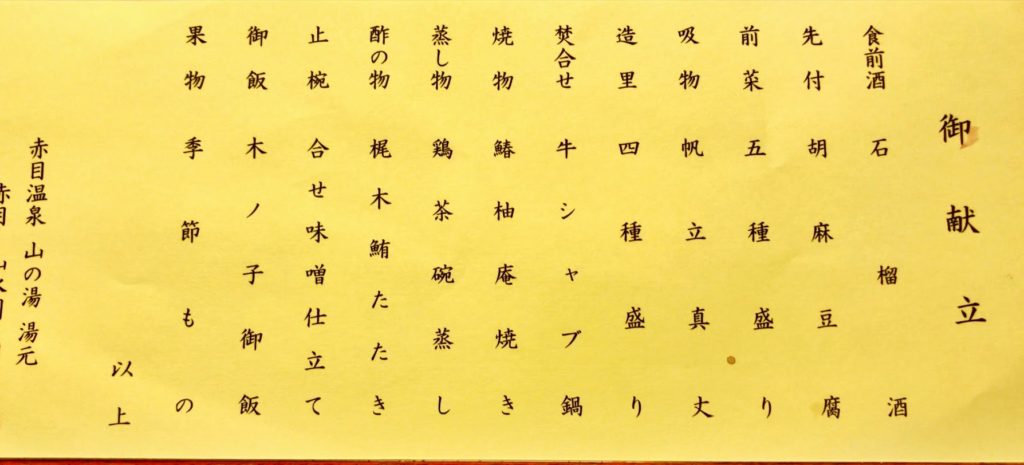 御献立
食前酒 石榴酒
先付 胡麻豆腐
前菜 五種盛り
吸物 帆立真丈
造里 四種盛り
焚合せ 牛シャブ鍋
焼物 鰆柚庵焼き
蒸し物 鶏茶碗蒸し
酢の物 梶木鮪たたき
止椀 合せ味噌仕立て
御飯 木ノ子御飯
果物 季節もの
以上
赤目温泉 山の湯 湯元
赤目